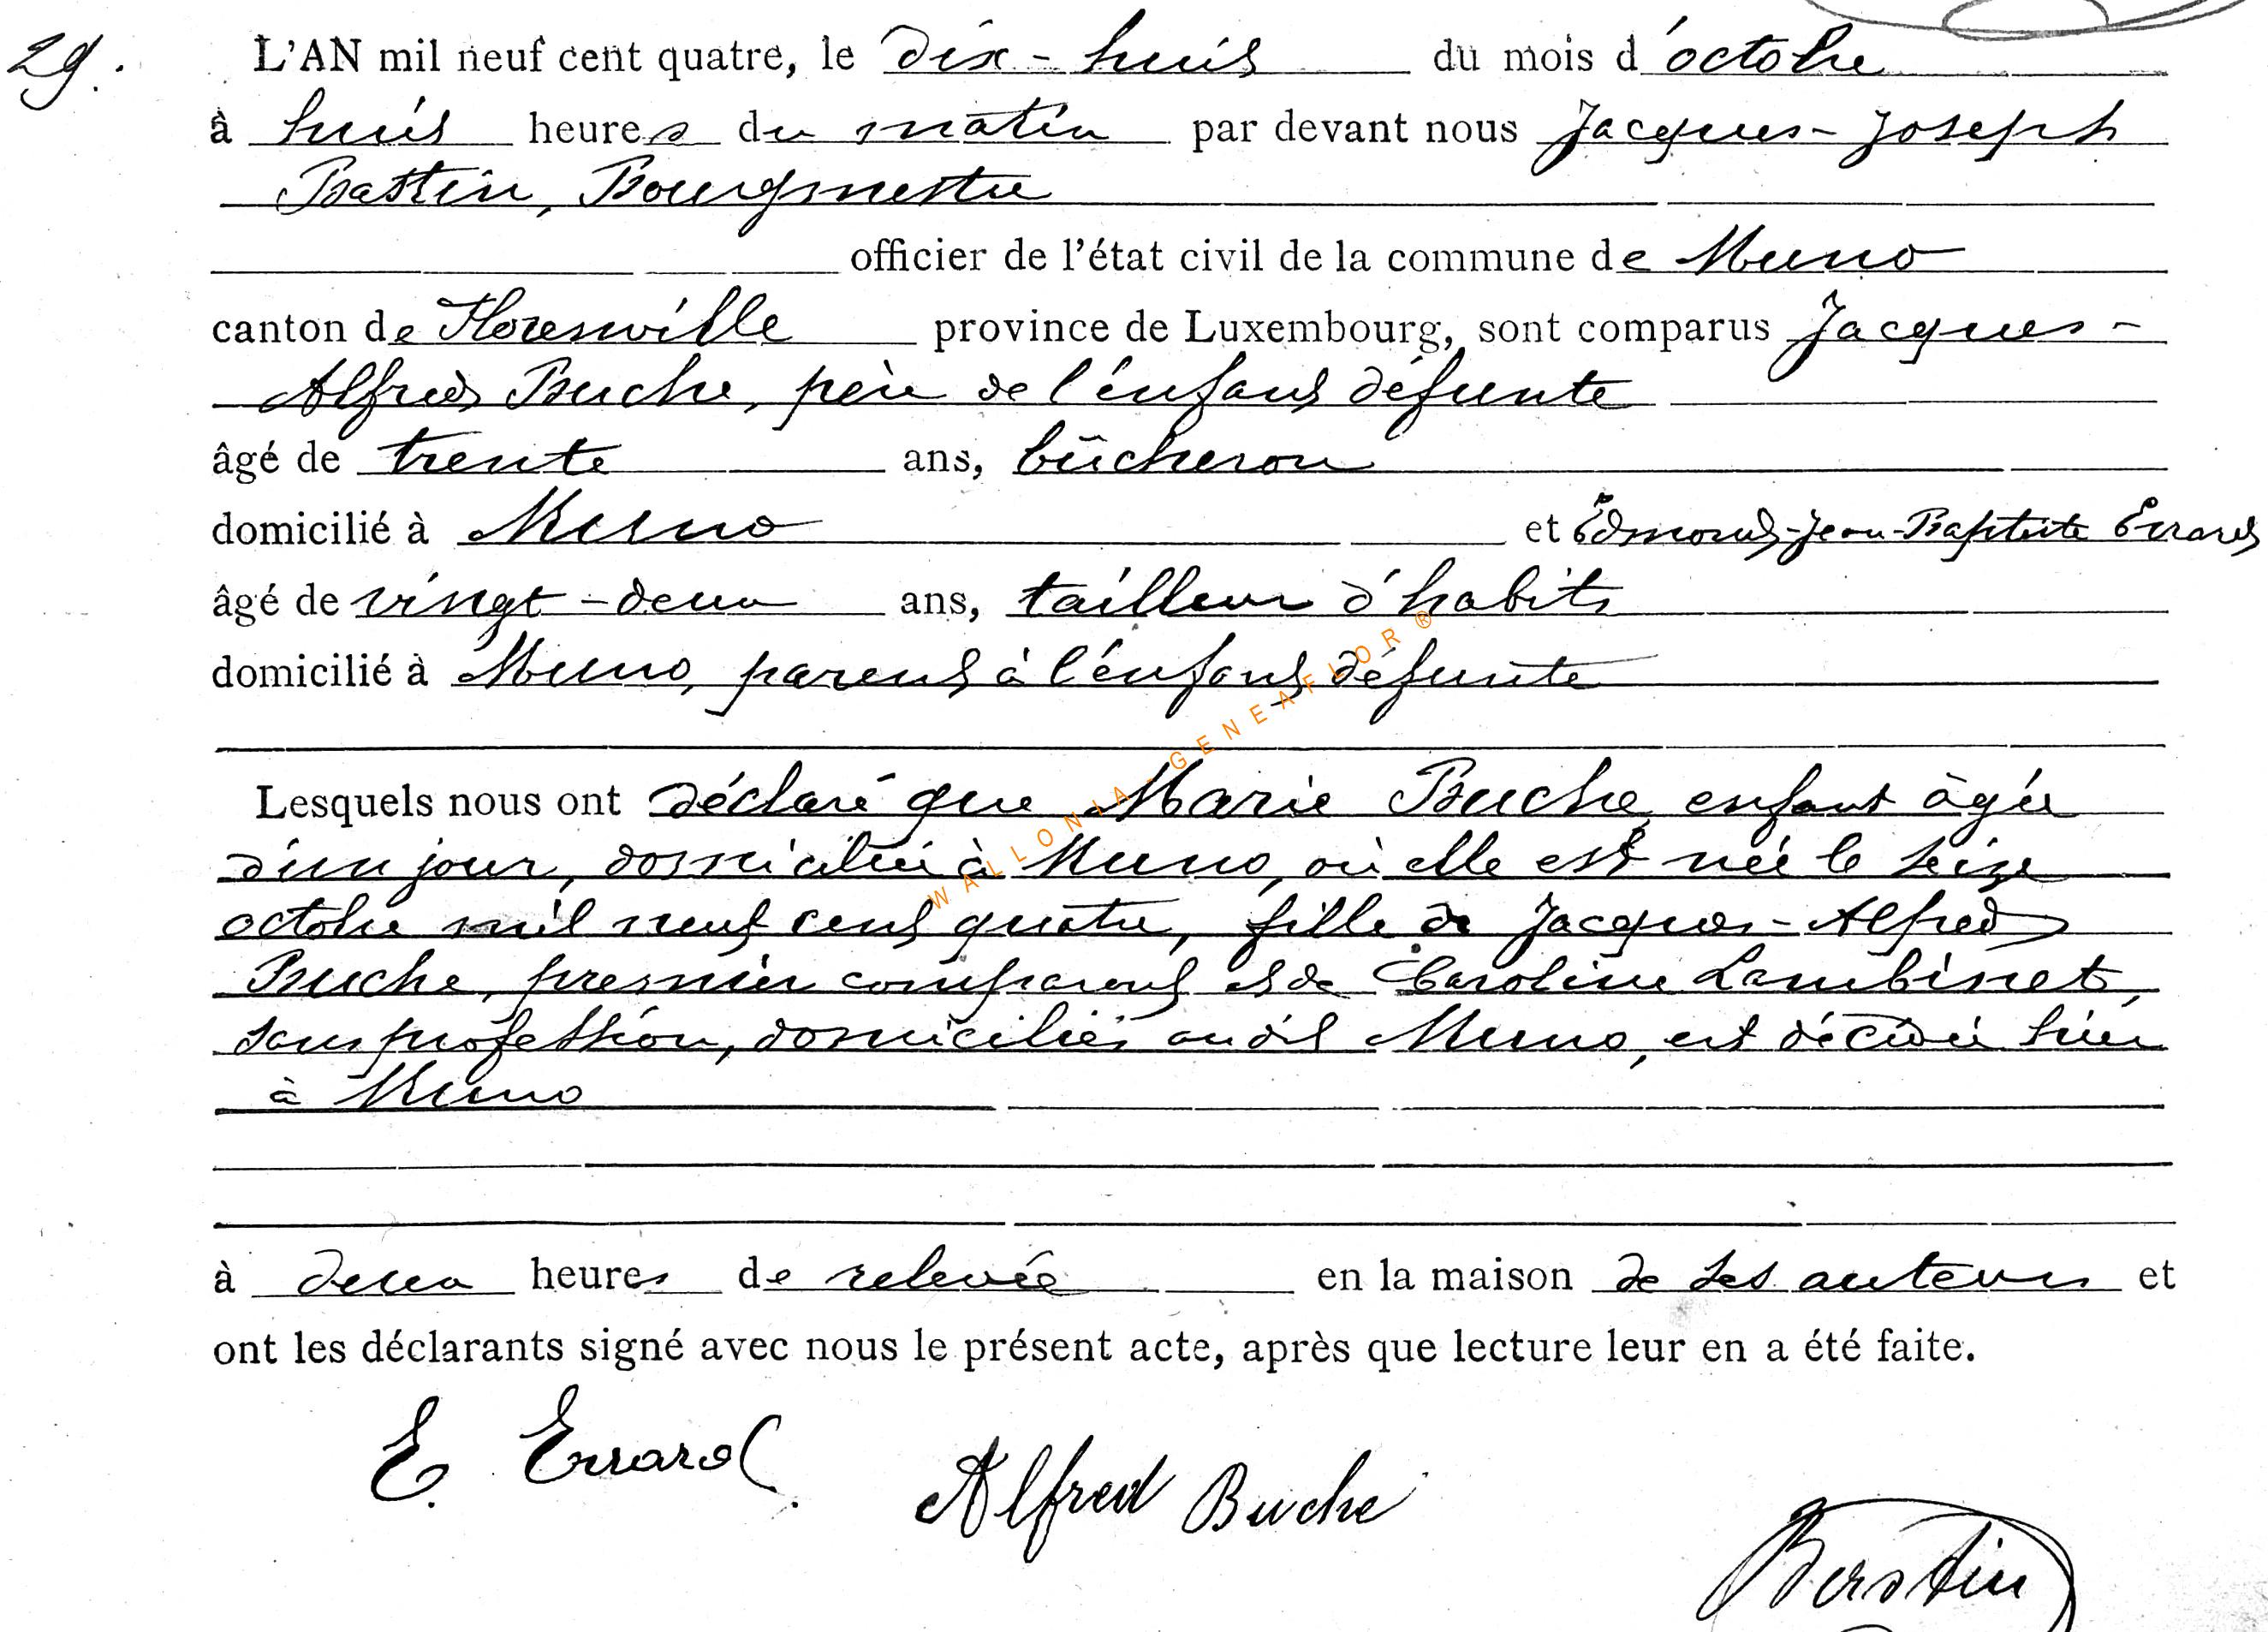 29.
L'AN mil neuf cent quatre, le dix-huit du mois d'octobre
à huit heures du matin par devant nous Jacques-Joseph
Bastin, Bourgmestre
officier de l'état civil de la commune de Muno
canton de Florenville province de Luxembourg, sont comparus Jacques-
Alfred Buche, père de l'enfant défunte
âgé de trente ans, bûcheron
domicilié à Muno et Edmond-Jean-Baptiste Errard
âgé de vingt-deux ans, tailleur d'habits
domicilié à Muno, parent à l'enfant défunte
Lesquels nous ont déclaré que Marie Buche, enfant âgée
d'un jour, domiciliée à Muno, où elle est née le seize
octobre mil neuf cent quatre, fille de Jacques-Alfred
Buche, premier comparant et de Caroline Lambinet,
sans profession, domiciliés audit Muno, est décédée hier
à Muno
à deux heures de relevée en la maison de ses auteurs et
ont les déclarants signé avec nous le présent acte, après que lecture leur en a été faite.
E. Errard. Alfred Buche
Bastin
WALLONIA-GENEAFLOR®